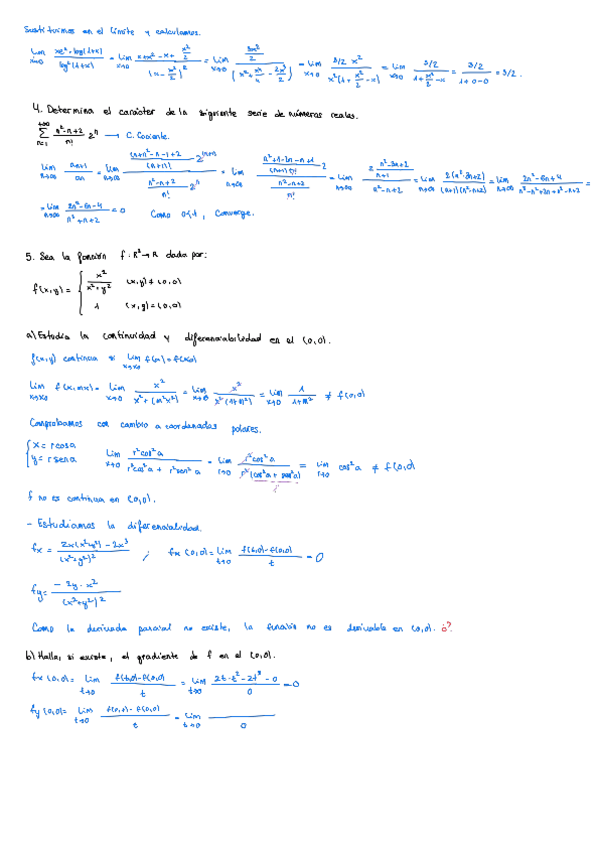 Sustituimos en el límite y calculamos.
lim x→0 (xe^x - log(1+x))/(log²(1+x)) = lim x→0 (x+x²-x+x²/2)/(x-x²/2)² = lim x→0 (3x²/2)/(x²+x⁴/4-2x³/2) = lim x→0 (3/2 x²)/(x²(1+x²/2-x)) = lim x→0 (3/2)/(1+x²/2-x) = (3/2)/(1+0-0) = 3/2.
4. Determina el carácter de la siguiente serie de números reales.
+∞ Σ n=1 (n²-n+2)/n! 2^n → C. Cociente.
lim n→∞ an+1/an = lim n→∞
= lim n→∞ = 0 Como 0<1, Converge.
5. Sea la función f: R²→R dada por:
f(x,y) = { x²/(x²+y²) (x,y)≠(0,0)
1 (x,y)=(0,0)
a) Estudia la continuidad y diferenciabilidad en el (0,0).
f(x,y) continua si lim x→x0 f(x)=f(x0)
lim x→x0 f(x,mx) = lim x→0 x²/(x²+(m²x²)) = lim x→0 x²/(x²(1+m²)) = lim x→0 1/(1+m²) ≠ f(0,0)
Comprobamos con cambio a coordenadas polares.
{ x = r cos a
y = r sen a lim r²cos²a/(r²cos²a + r²sen²a) = lim r→0 r²cos²a/(r²(cos²a + sen²a)) = lim r→0 cos²a ≠ f(0,0)
f no es continua en (0,0).
- Estudiamos la diferenciabilidad.
fx = (2x(x²+y²) - 2x³)/(x²+y²)² ; fx(0,0) = lim t→0 (f(t,0)-f(0,0))/t = 0
fy = (-2y · x²)/(x²+y²)²
Como la derivada parcial no existe, la función no es derivable en (0,0). ¿?
b) Halla, si existe, el gradiente de f en el (0,0).
fx(0,0) = lim t→0 (f(t,0)-f(0,0))/t = lim t→0 (2t·t²-2t³-0)/0 = 0
fy(0,0) = lim t→0 (f(0,t)-f(0,0))/t = lim t→0 /0